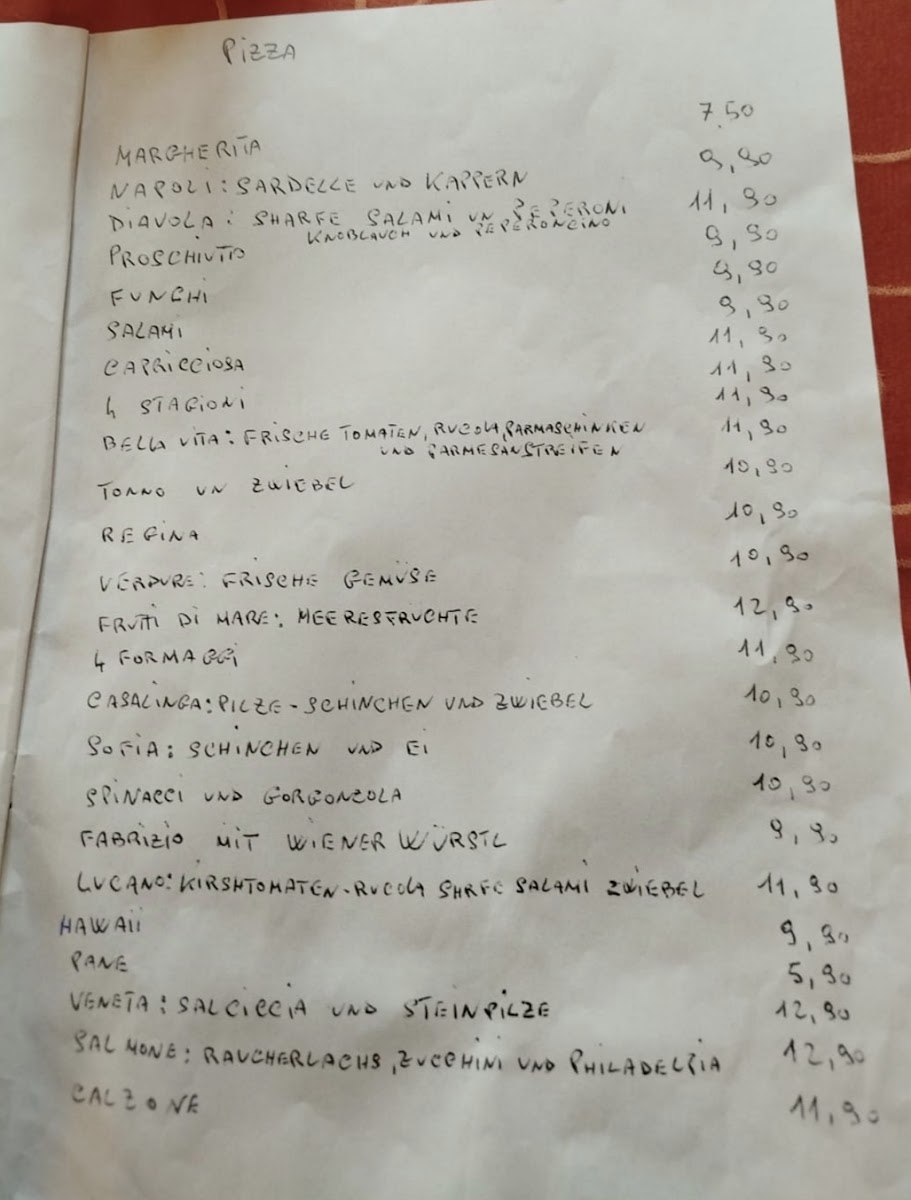 PIZZA
MARGHERITA 7.50
NAPOLI: SARDELLE UND KAPPERN 9,90
DIAVOLA: SHARFE SALAMI UN PEPERONI 11,90
KNOBLAUCH UND PEPERONCINO
PROSCHIUTO 9,90
FUNGHI 9,90
SALAMI 9,90
CAPRICCIOSA 11,90
4 STAGIONI 11,90
BELLA VITA: FRISCHE TOMATEN, RUCOLA, PARMASCHINKEN 11,90
UND PARMESANSTREIFEN 11,90
TONNO UN ZWIEBEL 10,90
REGINA 10,90
VERDURE: FRISCHE GEMÜSE 10,90
FRUTTI DI MARE: MEERESFRUCHTE 12,90
4 FORMAGGI 11,90
CASALINGA: PILZE - SCHINCHEN UND ZWIEBEL 10,90
SOFIA: SCHINCHEN UND EI 10,90
SPINACCI UND GORGONZOLA 10,90
FABRIZIO MIT WIENER WÜRSTL 9,90
LUCANO: KIRSHTOMATEN - RUCOLA SHRFE SALAMI ZWIEBEL 11,90
HAWAII 9,90
PANE 5,90
VENETA: SALCICCIA UND STEINPILZE 12,90
SALMONE: RAUCHERLACHS, ZUCCHINI UND PHILADELPIA 12,90
CALZONE 11,90